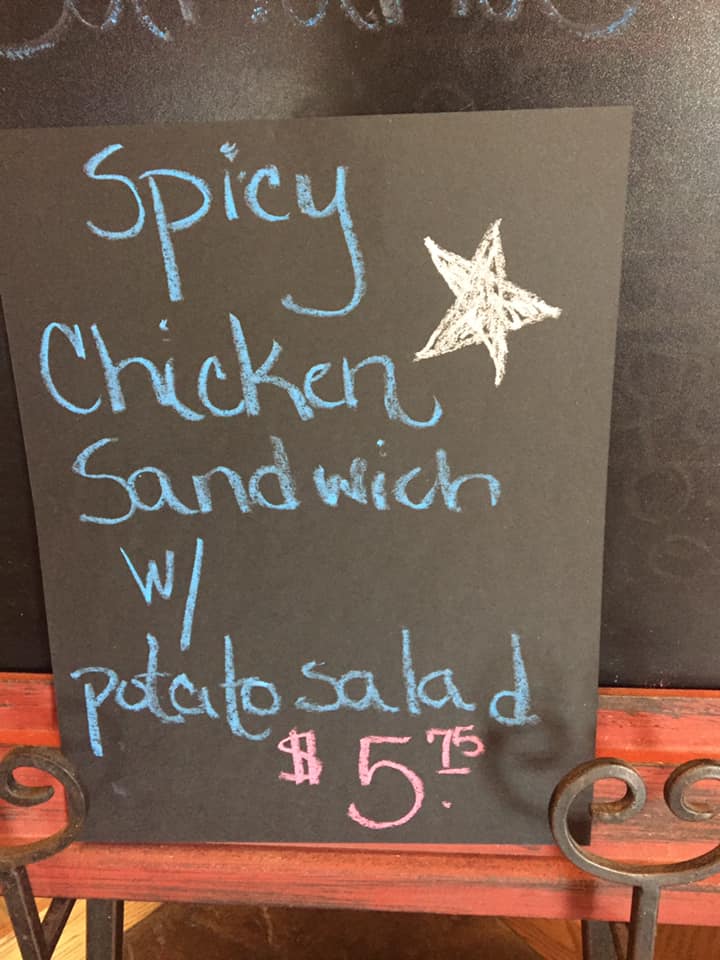 Spicy
Chicken
Sandwich
w/
potato salad
$5.75